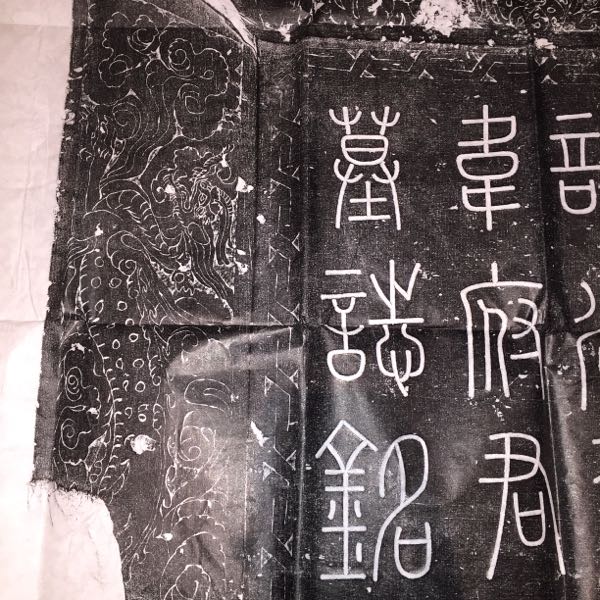 韋府君
墓誌銘